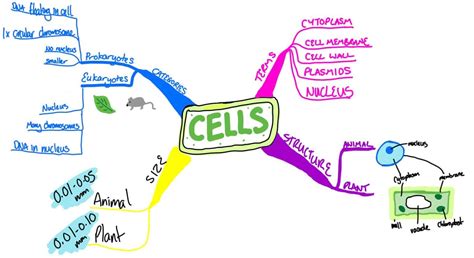 DNA floating in cell
1x circular chromosome
No nucleus
smaller
Prokaryotes
Eukaryotes
Nucleus
Many chromosomes
DNA in nucleus
CATEGORIES
CELLS
TERMS
CYTOPLASM
CELL MEMBRANE
CELL WALL
PLASMIDS
NUCLEUS
STRUCTURE
ANIMAL
nucleus
cytoplasm
membrane
PLANT
wall
vacuole
chloroplast
SIZE
0.01-0.05
mm
Animal
0.01-0.10
mm
Plant